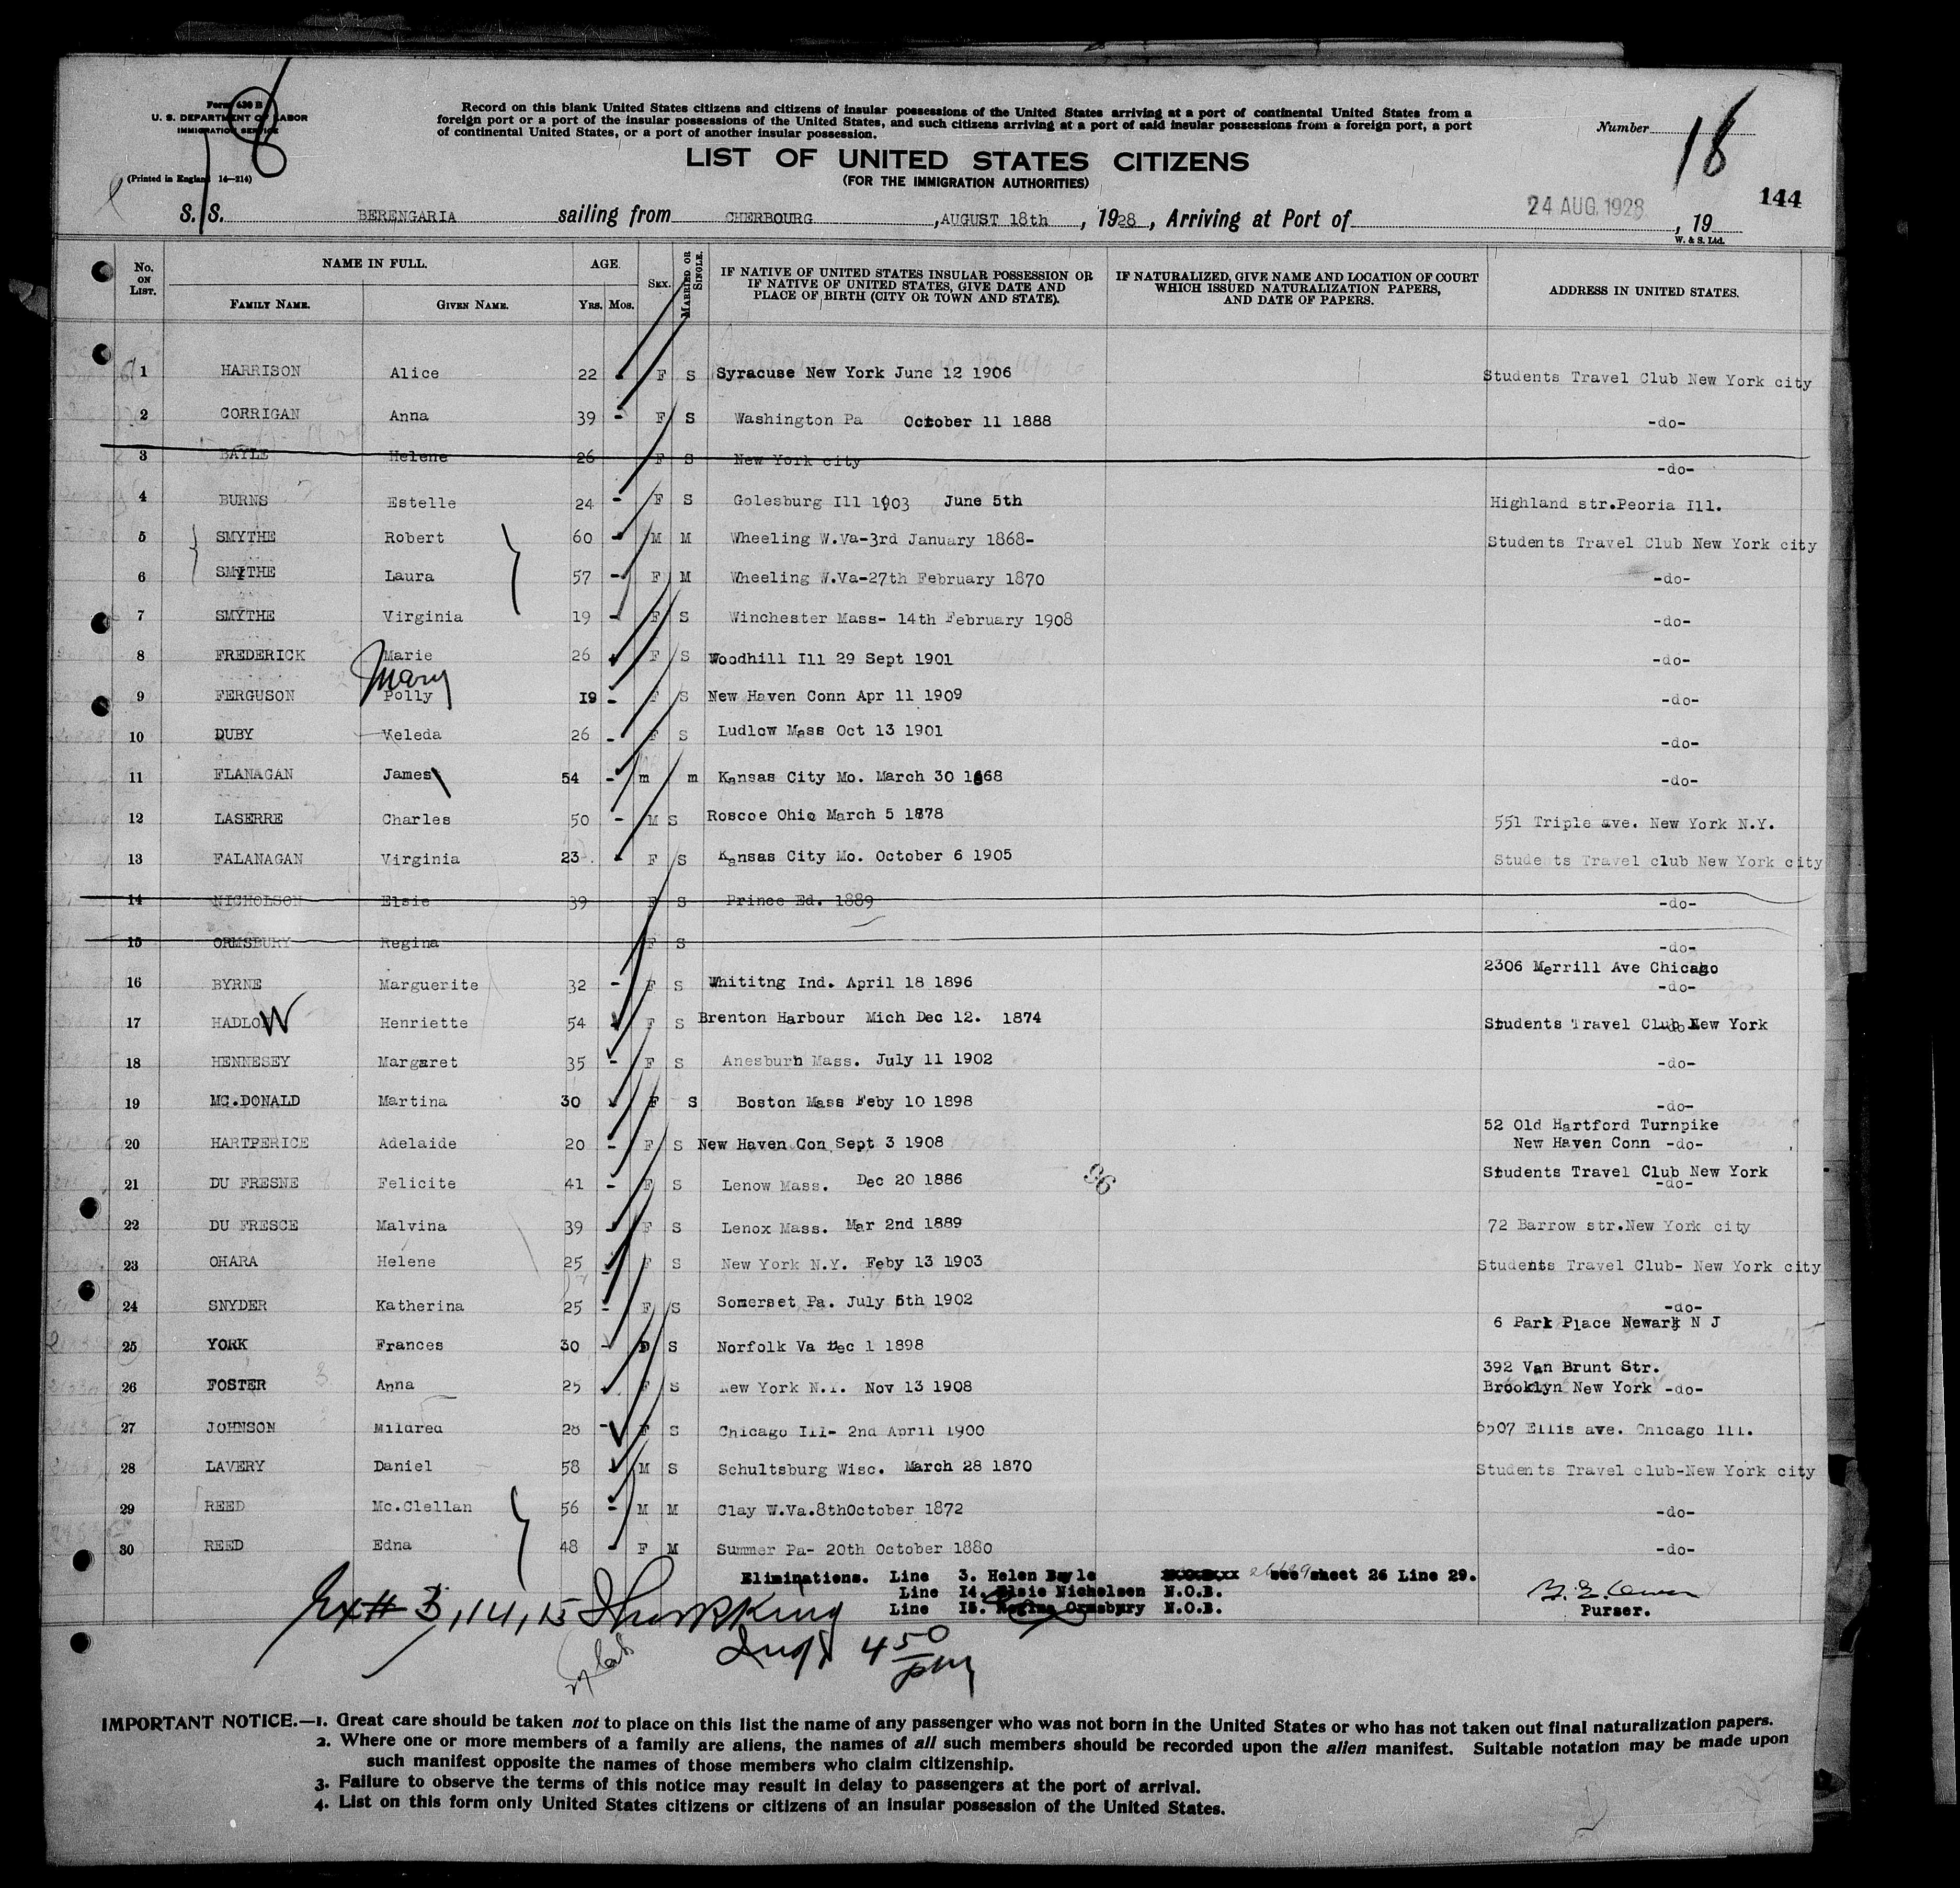 Form 630 B
U. S. DEPARTMENT OF LABOR
IMMIGRATION SERVICE
(Printed in England 14—214)
Record on this blank United States citizens and citizens of insular possessions of the United States arriving at a port of continental United States from a
foreign port or a port of the insular possessions of the United States, and such citizens arriving at a port of said insular possessions from a foreign port, a port
of continental United States, or a port of another insular possession.
Number 18
LIST OF UNITED STATES CITIZENS
(FOR THE IMMIGRATION AUTHORITIES)
144
S. S. BERENGARIA sailing from CHERBOURG, AUGUST 18th, 1928, Arriving at Port of 24 AUG. 1928, 19
W. & S. Ltd.
No. ON LIST. NAME IN FULL. FAMILY NAME. GIVEN NAME. AGE. YRS. MOS. SEX. MARRIED OR SINGLE. IF NATIVE OF UNITED STATES INSULAR POSSESSION OR IF NATIVE OF UNITED STATES, GIVE DATE AND PLACE OF BIRTH (CITY OR TOWN AND STATE). IF NATURALIZED, GIVE NAME AND LOCATION OF COURT WHICH ISSUED NATURALIZATION PAPERS, AND DATE OF PAPERS. ADDRESS IN UNITED STATES.
1 HARRISON Alice 22 - F S Syracuse New York June 12 1906 Students Travel Club New York city
2 CORRIGAN Anna 39 - F S Washington Pa October 11 1888 -do-
3 BAYLE Helene 26 F S New York city -do-
4 BURNS Estelle 24 - F S Golesburg Ill 1903 June 5th Highland str.Peoria Ill.
5 SMYTHE Robert 60 - M M Wheeling W.Va-3rd January 1868- Students Travel Club New York city
6 SMYTHE Laura 57 - F M Wheeling W.Va-27th February 1870 -do-
7 SMYTHE Virginia 19 - F S Winchester Mass- 14th February 1908 -do-
8 FREDERICK Marie 26 F S Woodhill Ill 29 Sept 1901 -do-
Mary
9 FERGUSON Polly 19 - F S New Haven Conn Apr 11 1909 -do-
10 DUBY Veleda 26 - F S Ludlow Mass Oct 13 1901 -do-
11 FLANAGAN James 54 - m m Kansas City Mo. March 30 1868 -do-
12 LASERRE Charles 50 - M S Roscoe Ohio March 5 1878 551 Triple ave. New York N.Y.
13 FALANAGAN Virginia 23 - F S Kansas City Mo. October 6 1905 Students Travel club New York city
14 NICHOLSON Elsie 39 F S Prince Ed. 1889 -do-
15 ORMSBURY Regina F S -do-
2306 Merrill Ave Chicago
16 BYRNE Marguerite 32 - F S Whititng Ind. April 18 1896 -do-
17 HADLOW Henriette 54 F S Brenton Harbour Mich Dec 12. 1874 Students Travel Club New York
18 HENNESEY Margaret 35 - F S Anesburh Mass. July 11 1902 -do-
19 MC.DONALD Martina 30 F S Boston Mass Feby 10 1898 -do-
52 Old Hartford Turnpike
20 HARTPERICE Adelaide 20 - F S New Haven Con Sept 3 1908 New Haven Conn -do-
Students Travel Club New York
21 DU FRESNE Felicite 41 - F S Lenow Mass. Dec 20 1886 -do-
96
22 DU FRESCE Malvina 39 - F S Lenox Mass. Mar 2nd 1889 72 Barrow str.New York city
23 OHARA Helene 25 - F S New York N.Y. Feby 13 1903 Students Travel Club- New York city
24 SNYDER Katherina 25 - F S Somerset Pa. July 5th 1902 -do-
6 Park Place Newark N J
25 YORK Frances 30 - S Norfolk Va Dec 1 1898
392 Van Brunt Str.
26 FOSTER Anna 25 F S New York N.Y. Nov 13 1908 Brooklyn New York -do-
27 JOHNSON Mildred 28 - F S Chicago Ill- 2nd April 1900 6507 Ellis ave. Chicago Ill.
28 LAVERY Daniel 58 M S Schultsburg Wisc. March 28 1870 Students Travel club-New York city
29 REED Mc.Clellan 56 - M M Clay W.Va.8thOctober 1872 -do-
30 REED Edna 48 - F M Summer Pa- 20th October 1880 -do-
Eliminations. Line 3. Helen Bayle see sheet 26 Line 29.
Line 14. Elsie Nicholsen N.O.B.
Line 15. Regina Ormsbury N.O.B.
Purser.
Ex# 3, 14, 15
4 50 pm
IMPORTANT NOTICE.—1. Great care should be taken not to place on this list the name of any passenger who was not born in the United States or who has not taken out final naturalization papers.
2. Where one or more members of a family are aliens, the names of all such members should be recorded upon the alien manifest. Suitable notation may be made upon
such manifest opposite the names of those members who claim citizenship.
3. Failure to observe the terms of this notice may result in delay to passengers at the port of arrival.
4. List on this form only United States citizens or citizens of an insular possession of the United States.